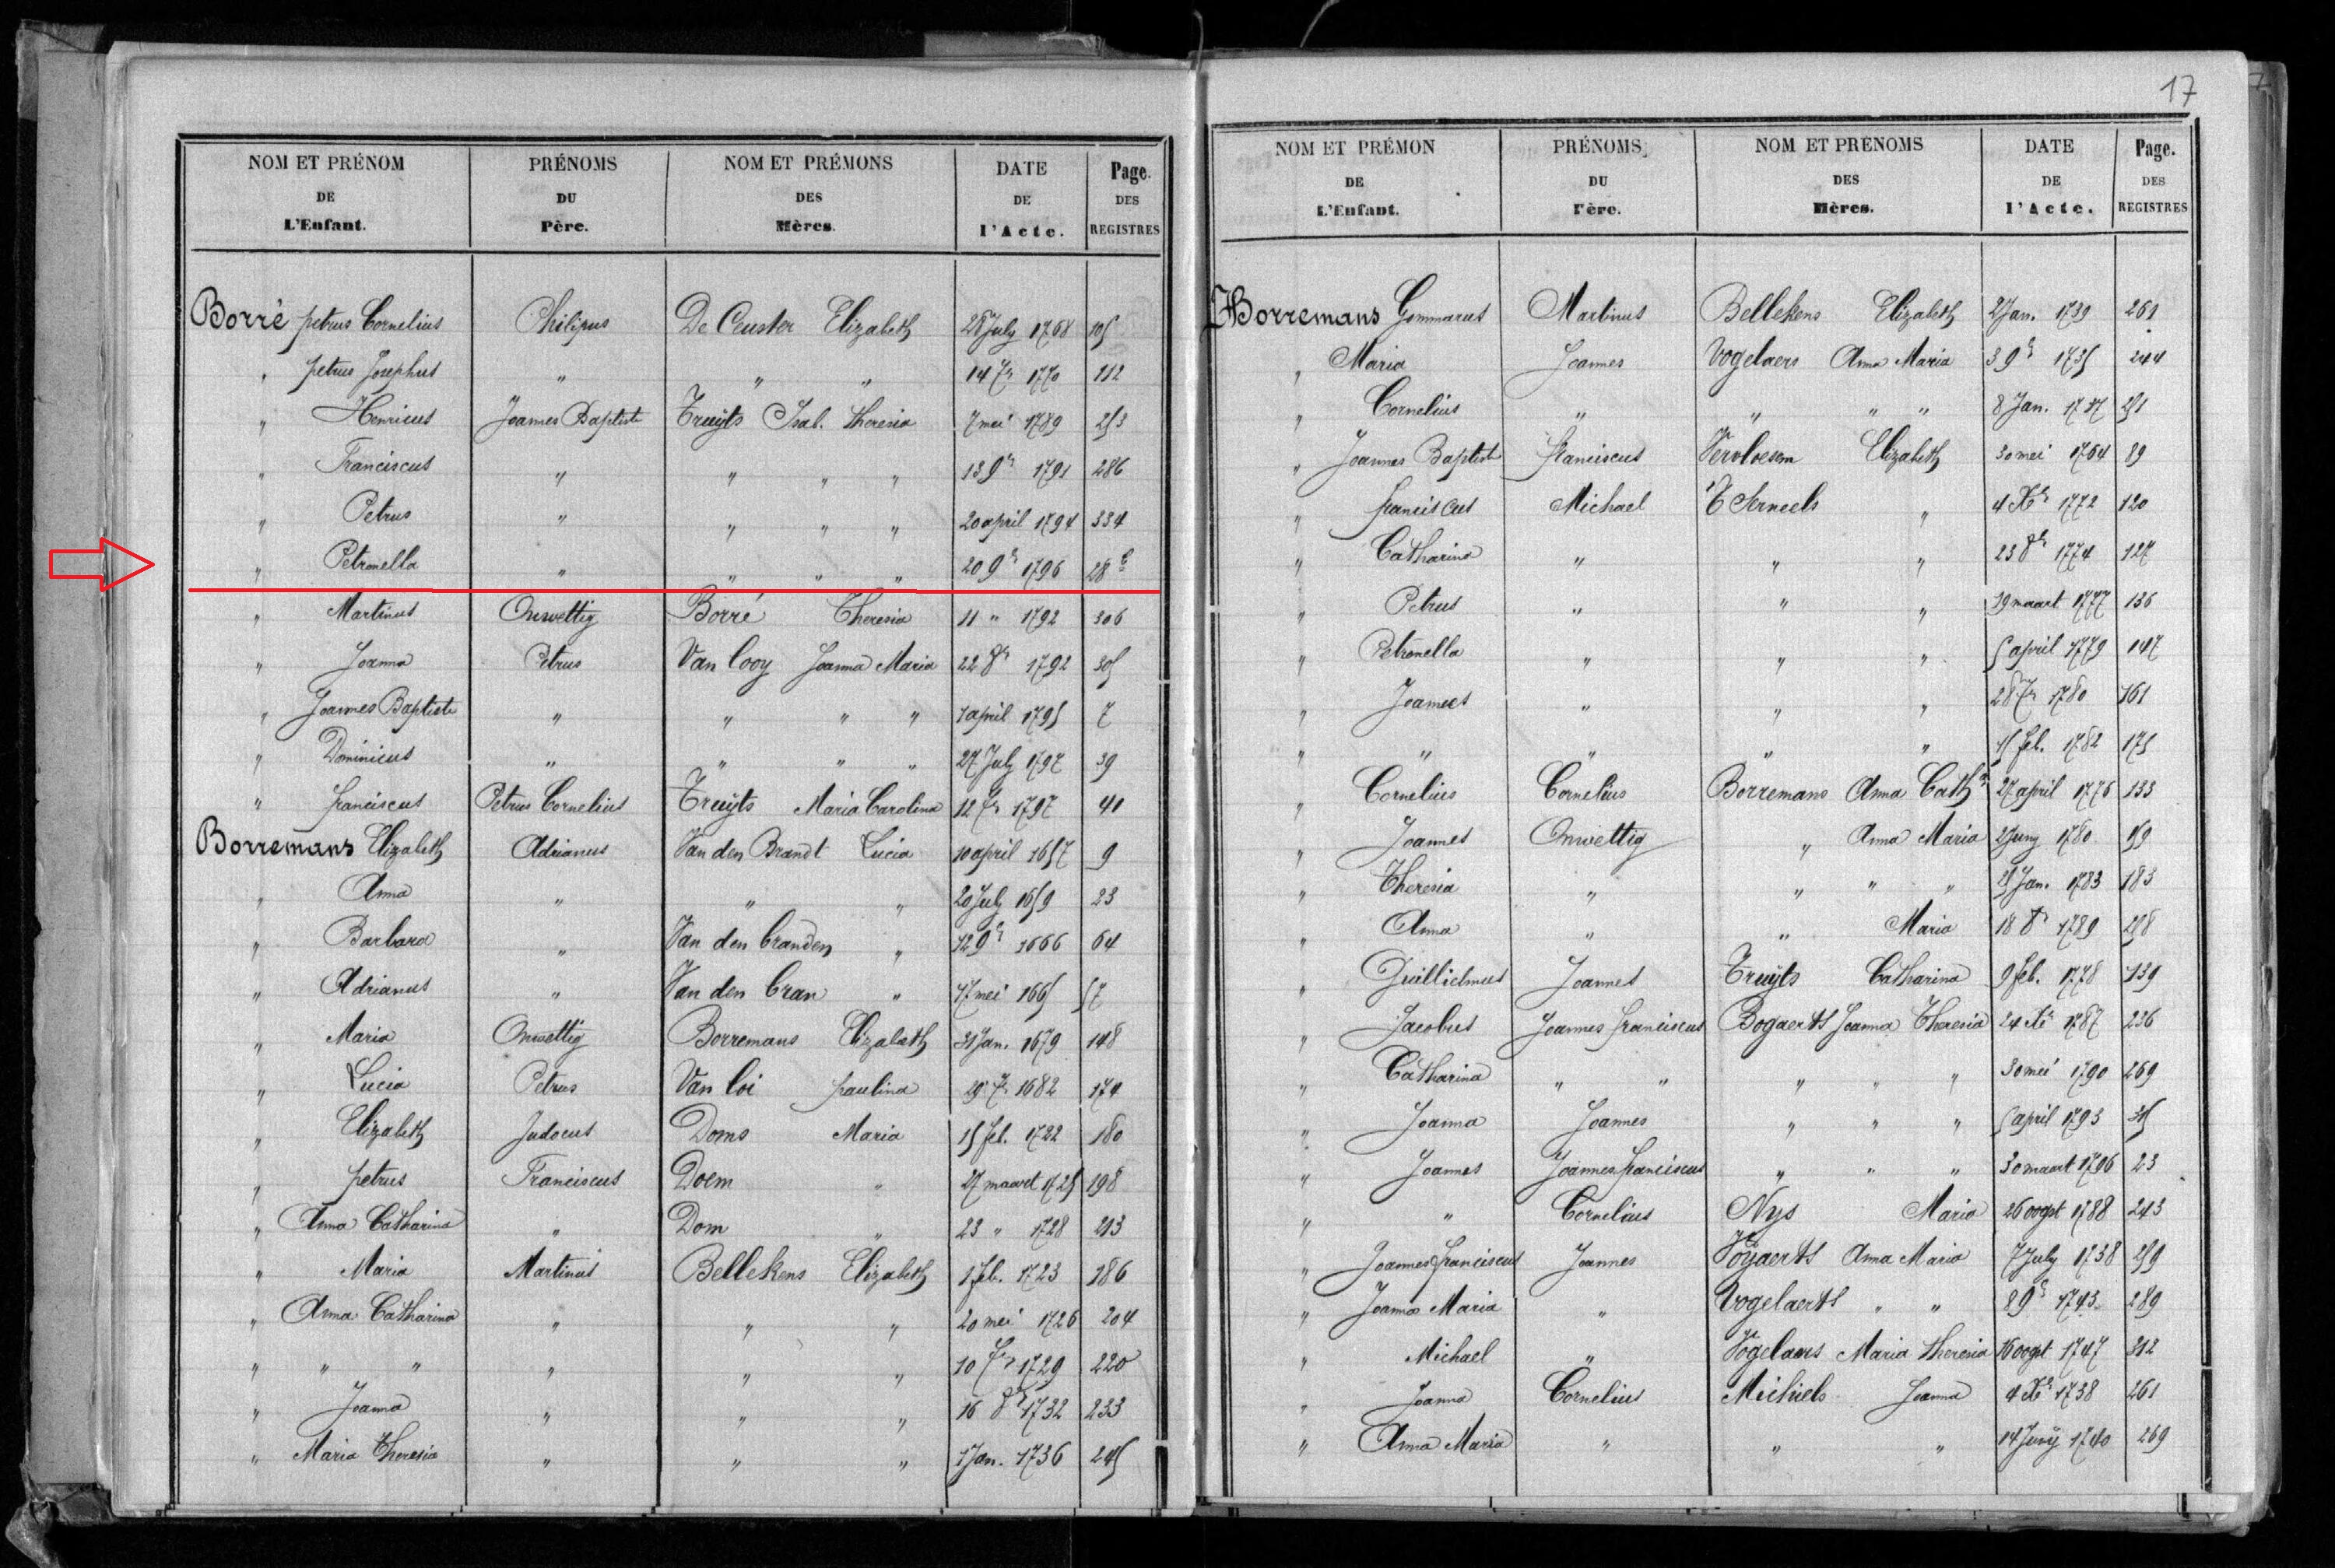 17
NOM ET PRÉNOM DE L'Enfant. | PRÉNOMS DU Père. | NOM ET PRÉMONS DES Mères. | DATE DE l'Acte. | Page. DES REGISTRES
Borré petrus Cornelius | Philipus | De Ceuster Elizabeth | 28 July 1768 | 105
" petrus Josephus | " | " " | 14 7r 1770 | 112
" Henricus | Joannes Baptiste | Truijts Isab. theresia | 7 mei 1789 | 253
" Franciscus | " | " " " | 13 9r 1791 | 286
" Petrus | " | " " " | 20 april 1794 | 334
" Petronella | " | " " " | 20 9r 1796 | 28
" Martinus | Onwettig | Borré Theresia | 11 " 1792 | 306
" Joanna | Petrus | Van looy Joanna Maria | 22 8r 1792 | 305
" Joannes Baptiste | " | " " " | 1 april 1795 | 7
" Dominicus | " | " " " | 27 July 1797 | 39
" franciscus | Petrus Cornelius | Truijts Maria Carolina | 12 7r 1797 | 41
Borremans Elizabeth | Adrianus | Van den Brandt Lucia | 10 april 1657 | 9
" Anna | " | " " | 20 July 1659 | 23
" Barbara | " | Van den branden " | 12 9r 1666 | 64
" Adrianus | " | Van den bran " | 17 mei 1665 | 57
" Maria | Onwettig | Borremans Elizabeth | 31 Jan. 1679 | 148
" Lucia | Petrus | Van loi paulina | 29 7r 1682 | 174
" Elizabeth | Judocus | Doms Maria | 15 feb. 1722 | 180
" petrus | Franciscus | Doem " | 27 maart 1725 | 198
" Anna Catharina | " | Dom " | 23 " 1728 | 213
" Maria | Martinus | Bellekens Elizabeth | 1 feb. 1723 | 186
" Anna Catharina | " | " " | 20 mei 1726 | 204
" " " | " | " " | 10 7r 1729 | 220
" Joanna | " | " " | 16 8r 1732 | 233
" Maria Theresia | " | " " | 1 Jan. 1736 | 245
NOM ET PRÉMON DE L'Enfant. | PRÉNOMS DU Père. | NOM ET PRENOMS DES Mères. | DATE DE l'Acte. | Page. DES REGISTRES
Borremans Gommarus | Martinus | Bellekens Elizabeth | 2 Jan. 1739 | 261
" Maria | Joannes | Vogelaers Anna Maria | 3 9r 1735 | 244
" Cornelius | " | " " " | 8 Jan. 1737 | 251
" Joannes Baptist | franciscus | Vervloesem Elizabeth | 30 mei 1764 | 89
" franciscus | Michael | T'Serneels " | 4 Xr 1772 | 120
" Catharina | " | " " | 23 8r 1774 | 127
" Petrus | " | " " | 19 maart 1777 | 136
" Petronella | " | " " | 5 april 1779 | 147
" Joannes | " | " " | 28 7r 1780 | 161
" " | " | " " | 15 feb. 1782 | 175
" Cornelius | Cornelius | Borremans Anna Cath | 27 april 1776 | 133
" Joannes | Onwettig | " Anna Maria | 2 Juny 1780 | 159
" Theresia | " | " " " | 25 Jan. 1783 | 183
" Anna | " | " Maria | 18 8r 1789 | 258
" Guillielmus | Joannes | Truijts Catharina | 9 feb. 1778 | 139
" Jacobus | Joannes franciscus | Bogaerts Joanna Theresia | 24 Xr 1787 | 236
" Catharina | " " | " " " | 30 mei 1790 | 269
" Joanna | Joannes | " " " | 5 april 1793 | 315
" Joannes | Joannes franciscus | " " " | 30 maart 1796 | 23
" " | Cornelius | Nys Maria | 26 oogst 1788 | 243
" Joannes franciscus | Joannes | Anna Maria | 7 July 1738 | 259
" Joanna Maria | " | Vogelaerts " " | 8 9r 1743 | 289
" Michael | " | Vogelaers Maria theresia | 16 oogst 1747 | 312
" Joanna | Cornelius | Michiels Joanna | 4 Xr 1738 | 261
" Anna Maria | " | " " | 14 Junij 1740 | 269